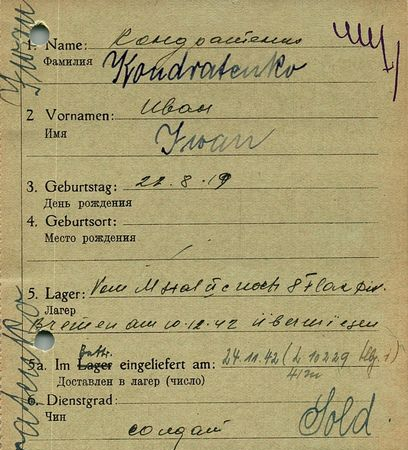 1. Name: Кондратенко
Фамилия Kondratenko
2 Vornamen: Иван
Имя Iwan
3. Geburtstag: 22.8.19
День рождения
4. Geburtsort:
Место рождения
5. Lager: Vom M Stal nach 8 Flak
Лагер
Bremen am 10.12.42 überwiesen
5a. Im Lager eingeliefert am: 24.11.42
Доставлен в лагер (число)
6. Dienstgrad: Sold.
Чин солдат
Iwan